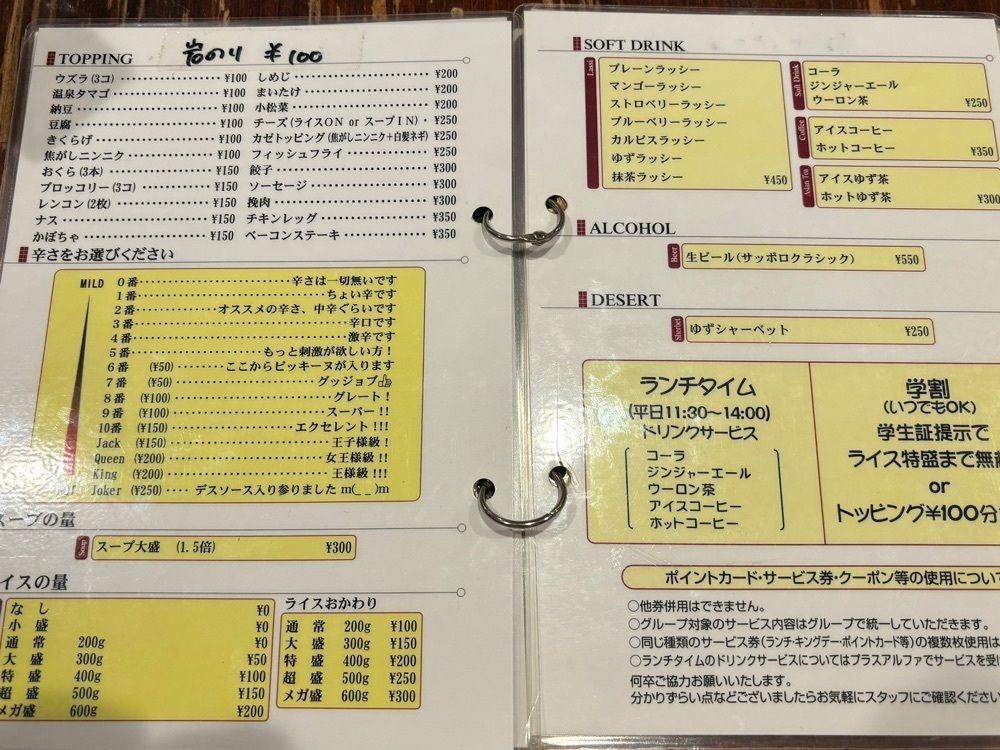 TOPPING 岩のり ¥100
ウズラ(3コ) ¥100
温泉タマゴ ¥100
納豆 ¥100
豆腐 ¥100
きくらげ ¥100
焦がしニンニク ¥100
おくら(3本) ¥150
ブロッコリー(3コ) ¥150
レンコン(2枚) ¥150
ナス ¥150
かぼちゃ ¥150
しめじ ¥200
まいたけ ¥200
小松菜 ¥200
チーズ(ライスON or スープIN) ¥250
カゼトッピング(焦がしニンニク+白髪ネギ) ¥250
フィッシュフライ ¥250
餃子 ¥300
ソーセージ ¥300
挽肉 ¥300
チキンレッグ ¥350
ベーコンステーキ ¥350
辛さをお選びください
MILD 0番 辛さは一切無いです
1番 ちょい辛です
2番 オススメの辛さ、中辛ぐらいです
3番 辛口です
4番 激辛です
5番 もっと刺激が欲しい方!
6番 (¥50) ここからピッキーヌが入ります
7番 (¥50) グッジョブ👍
8番 (¥100) グレート!
9番 (¥100) スーパー!!
10番 (¥150) エクセレント!!!
Jack (¥150) 王子様級!
Queen (¥200) 女王様級!!
King (¥200) 王様級!!!
Joker (¥250) デスソース入り参りました m(_ _)m
スープの量
Soup スープ大盛 (1.5倍) ¥300
イスの量
なし ¥0
小盛 ¥0
通常 200g ¥0
大盛 300g ¥50
特盛 400g ¥100
超盛 500g ¥150
メガ盛 600g ¥200
ライスおかわり
通常 200g ¥100
大盛 300g ¥150
特盛 400g ¥200
超盛 500g ¥250
メガ盛 600g ¥300
SOFT DRINK
Lassi
プレーンラッシー
マンゴーラッシー
ストロベリーラッシー
ブルーベリーラッシー
カルピスラッシー
ゆずラッシー
抹茶ラッシー ¥450
Soft Drink
コーラ
ジンジャーエール
ウーロン茶 ¥250
Coffee
アイスコーヒー
ホットコーヒー ¥350
Asian Tea
アイスゆず茶
ホットゆず茶 ¥300
ALCOHOL
Beer 生ビール(サッポロクラシック) ¥550
DESERT
Sherbet ゆずシャーベット ¥250
ランチタイム
(平日11:30～14:00)
ドリンクサービス
コーラ
ジンジャーエール
ウーロン茶
アイスコーヒー
ホットコーヒー
学割
(いつでもOK)
学生証提示で
ライス特盛まで無
or
トッピング¥100分
ポイントカード・サービス券・クーポン等の使用につい
○他券併用はできません。
○グループ対象のサービス内容はグループで統一していただきます。
○同じ種類のサービス券(ランチ・キングデー・ポイントカード等)の複数枚使用は
○ランチタイムのドリンクサービスについてはプラスアルファでサービスを受け
何卒ご協力お願いいたします。
分かりずらい点などございましたらお気軽にスタッフにご確認ください